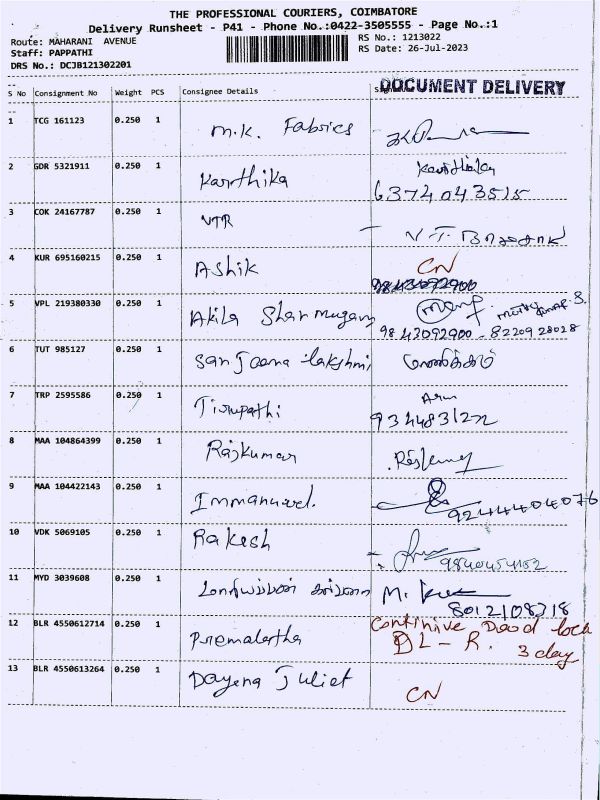 THE PROFESSIONAL COURIERS, COIMBATORE
Delivery Runsheet - P41 - Phone No.:0422-3505555 - Page No.:1
Route: MAHARANI AVENUE
RS No.: 1213022
Staff: PAPPATHI
RS Date: 26-Jul-2023
DRS No.: DCJB121302201
DOCUMENT DELIVERY
S No Consignment No Weight PCS Consignee Details
1 TCG 161123 0.250 1 M.K. Fabrics
2 GDR 5321911 0.250 1 Karthika Karthika
6374043515
3 COK 24167787 0.250 1 VTR
4 KUR 695160215 0.250 1 Ashik CN
5 VPL 219380330 0.250 1 Akila Shanmugam
9843092900 - 8220928028
6 TUT 985127 0.250 1 Sanjeena Lakshmi
7 TRP 2595586 0.250 1 Tirupathi Arun
8 MAA 104864399 0.250 1 Rajkumar Rajkumar
9 MAA 104422143 0.250 1 Immanuvel.
9244404076
10 VDK 5069105 0.250 1 Rakesh
11 MYD 3039608 0.250 1 M.
8012108318
12 BLR 4550612714 0.250 1 Premalatha Continive Dood lock
DL - R. 3 day
13 BLR 4550613264 0.250 1 Dayena Juliet
CN